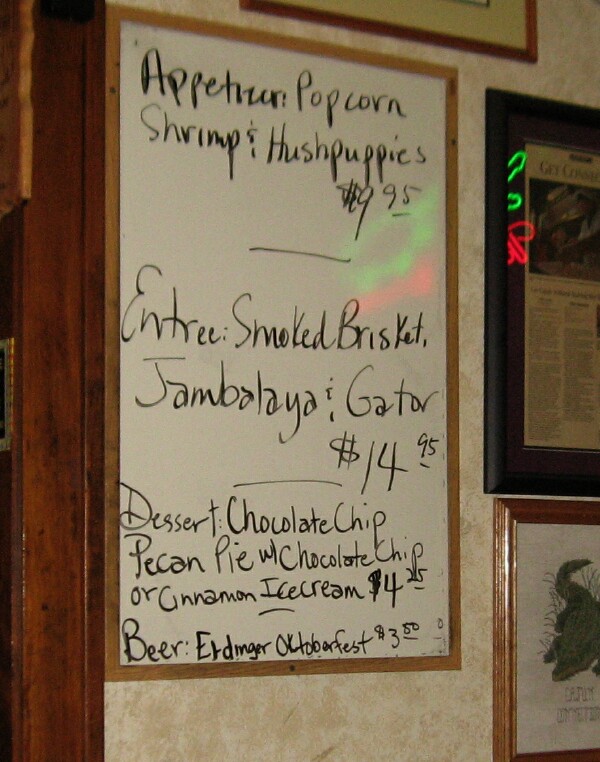 Appetizer: Popcorn
Shrimp & Hushpuppies
$9.95
Entree: Smoked Brisket,
Jambalaya & Gator
$14.95
Dessert: Chocolate Chip
Pecan Pie w/ Chocolate Chip
or Cinnamon Icecream $4.25
Beer: Erdinger Oktoberfest $3.50